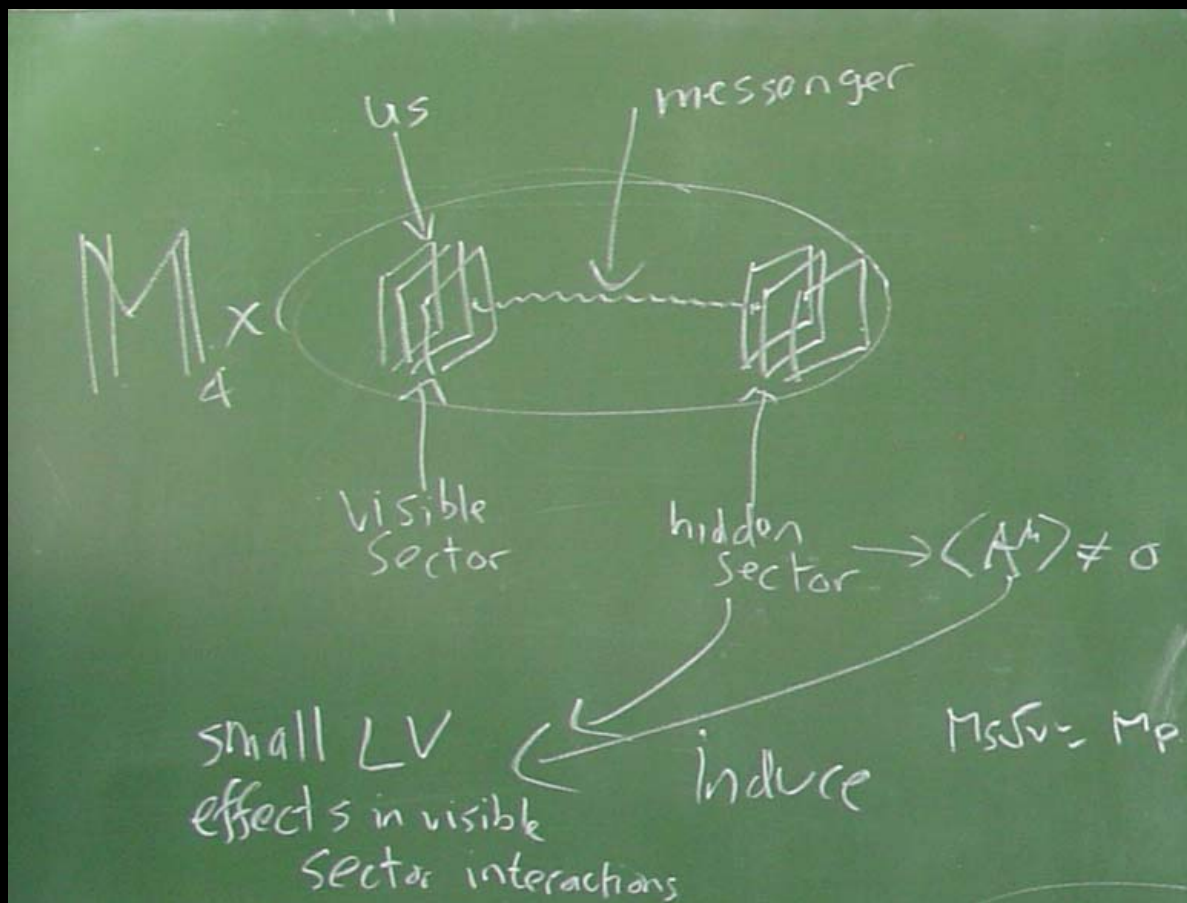 us
messenger
M₄ ×
visible
sector
hidden
sector → ⟨A^μ⟩ ≠ 0
small LV
effects in visible
sector interactions
Induce
Ms√v = Mp